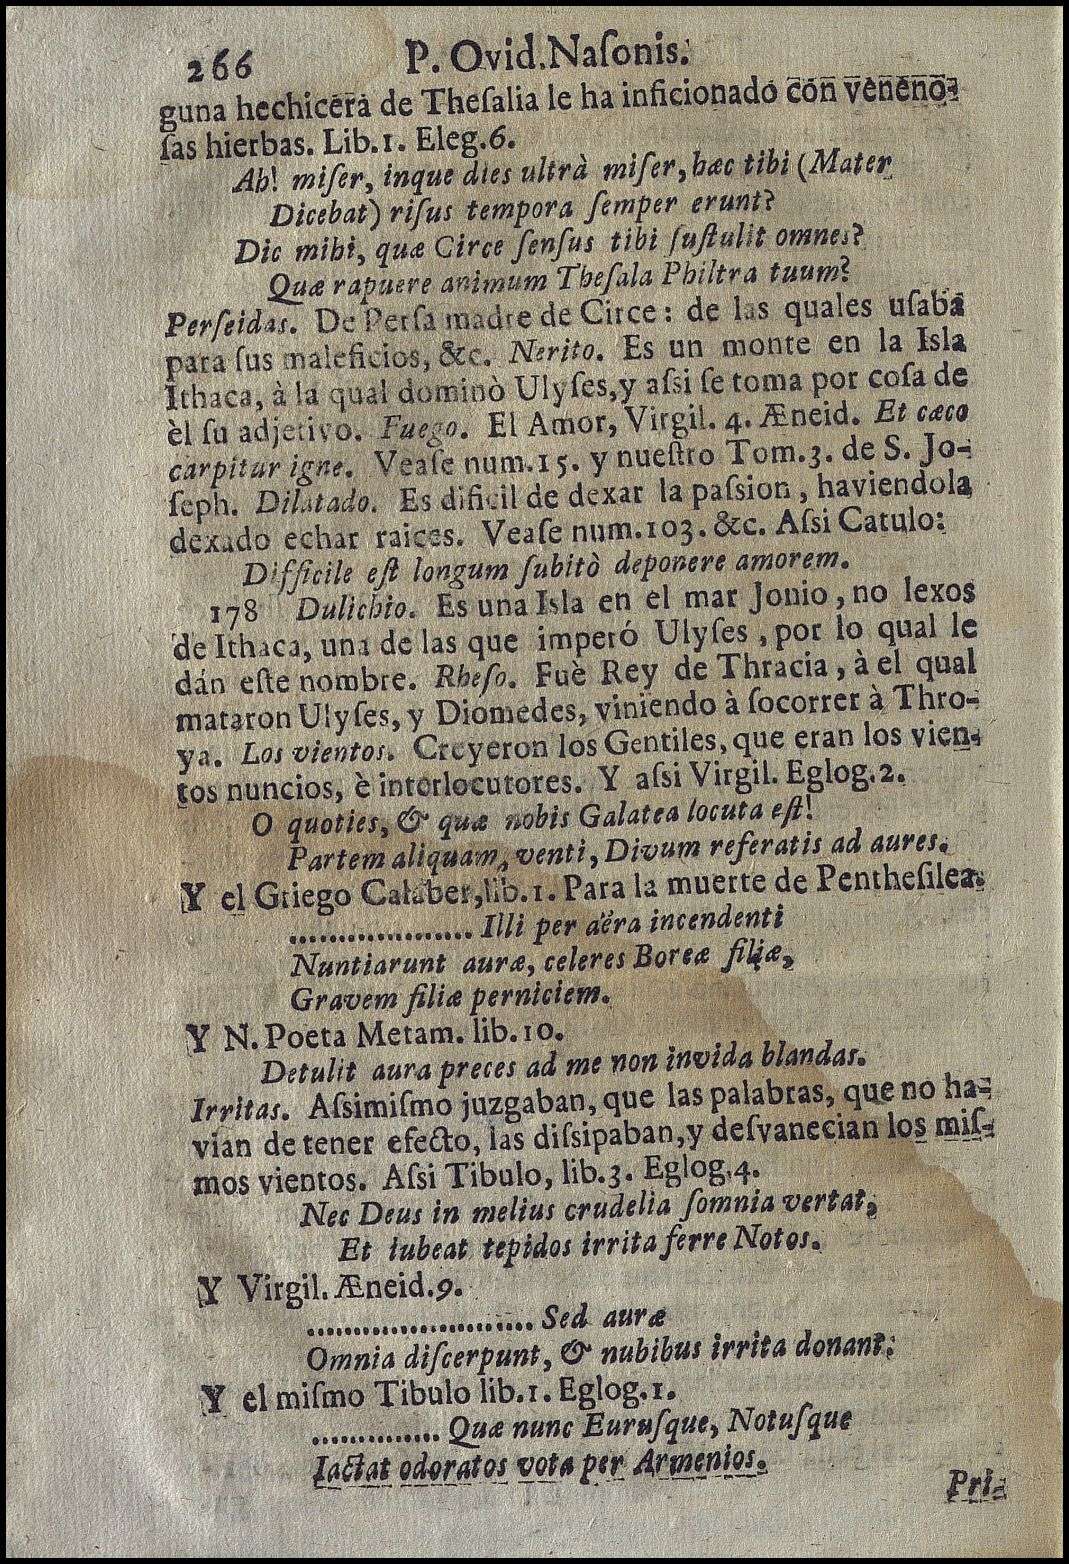 266 P. Ovid. Naſonis.
guna hechicera de Theſalia le ha inficionado con veneno-
ſas hierbas. Lib. 1. Eleg. 6.
Ah! miſer, inque dies ultrà miſer, hæc tibi (Mater
Dicebat) riſus tempora ſemper erunt?
Dic mihi, quæ Circe ſenſus tibi ſuſtulit omnes?
Quæ rapuere animum Theſala Philtra tuum?
Perſeidas. De Perſa madre de Circe: de las quales uſaba
para ſus maleficios, &c. Nerito. Es un monte en la Isla
Ithaca, à la qual dominò Ulyſes, y aſsi ſe toma por coſa de
èl ſu adjetivo. Fuego. El Amor, Virgil. 4. Æneid. Et cæco
carpitur igne. Veaſe num. 15. y nueſtro Tom. 3. de S. Jo-
ſeph. Dilatado. Es dificil de dexar la paſsion, haviendola
dexado echar raices. Veaſe num. 103. &c. Aſsi Catulo:
Difficile eſt longum ſubitò deponere amorem.
178 Dulichio. Es una Isla en el mar Jonio, no lexos
de Ithaca, una de las que imperó Ulyſes, por lo qual le
dán eſte nombre. Rheſo. Fuè Rey de Thracia, à el qual
mataron Ulyſes, y Diomedes, viniendo à ſocorrer à Thro-
ya. Los vientos. Creyeron los Gentiles, que eran los vien-
tos nuncios, è interlocutores. Y aſsi Virgil. Eglog. 2.
O quoties, & quæ nobis Galatea locuta eſt!
Partem aliquam, venti, Divum referatis ad aures.
Y el Griego Calaber, lib. 1. Para la muerte de Pentheſilea.
................... Illi per aëra incendenti
Nuntiarunt auræ, celeres Boreæ filiæ,
Gravem filiæ perniciem.
Y N. Poeta Metam. lib. 10.
Detulit aura preces ad me non invida blandas.
Irritas. Aſsimiſmo juzgaban, que las palabras, que no ha-
vian de tener efecto, las diſsipaban, y deſvanecian los miſ-
mos vientos. Aſsi Tibulo, lib. 3. Eglog. 4.
Nec Deus in melius crudelia ſomnia vertat,
Et iubeat tepidos irrita ferre Notos.
Y Virgil. Æneid. 9.
........................ Sed auræ
Omnia diſcerpunt, & nubibus irrita donant:
Y el miſmo Tibulo lib. 1. Eglog. 1.
.............. Quæ nunc Euruſque, Notuſque
Iactat odoratos vota per Armenios.
Pri-